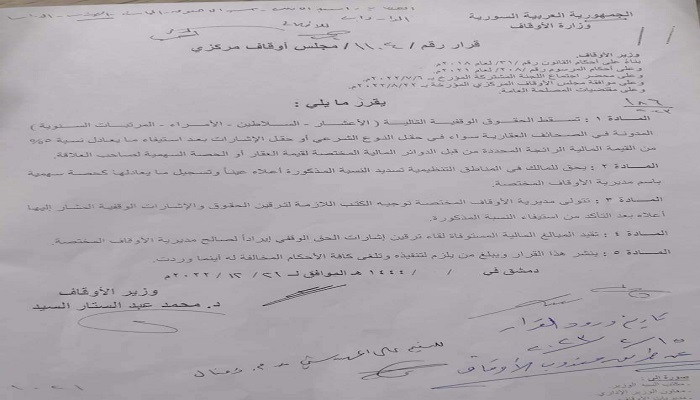 الجمهورية العربية السورية
وزارة الأوقاف
قرار رقم /١١٠٤/ مجلس أوقاف مركزي
وزير الأوقاف.
بناءً على أحكام القانون رقم /٣١/ لعام ٢٠١٨م.
وعلى أحكام المرسوم رقم /٢٠٨/ لعام ٢٠٢١م.
وعلى محضر اجتماع اللجنة المشتركة المؤرخ بـ ٢٠٢٢/٧/٦م.
وعلى موافقة مجلس الأوقاف المركزي المؤرخة بـ ٢٠٢٢/٨/٢٢م.
وعلى مقتضيات المصلحة العامة.
يقرر ما يلي :
المـــادة ١ : تسقط الحقوق الوقفية التالية ( الأعشار - السلاطين - الأمراء - المرتبات السنوية )
المدونة في الصحائف العقارية سواء في حقل النوع الشرعي أو حقل الإشارات بعد استيفاء ما يعادل نسبة ٥%
من القيمة المالية الرائجة المحددة من قبل الدوائر المالية المختصة لقيمة العقار أو الحصة السهمية لصاحب العلاقة.
المـــادة ٢ : يحق للمالك في المناطق التنظيمية تسديد النسبة المذكورة أعلاه عيناً وتسجيل ما يعادلها كحصة سهمية
باسم مديرية الأوقاف المختصة.
المـــادة ٣ : تتولى مديرية الأوقاف المختصة توجيه الكتب اللازمة لترقين الحقوق والإشارات الوقفية المشار إليها
أعلاه بعد التأكد من استيفاء النسبة المذكورة.
المـــادة ٤ : تقيد المبالغ المالية المستوفاة لقاء ترقين إشارات الحق الوقفي إيراداً لصالح مديرية الأوقاف المختصة.
المـــادة ٥ : ينشر هذا القرار ويبلغ من يلزم لتنفيذه وتلغى كافة الأحكام المخالفة له أينما وردت.
دمشق في / / ١٤٤٤ هـ الموافق لـ ٢٠٢٢/١٢/٢١م
وزير الأوقاف
د. محمد عبد الستار السيد
تاريخ ورود القرار
٢٠٢٣/٢/١٥
صورة إلى :
- مكتب السيد الوزير.
- معاون الوزير الإداري.
- مديريات الأوقاف.